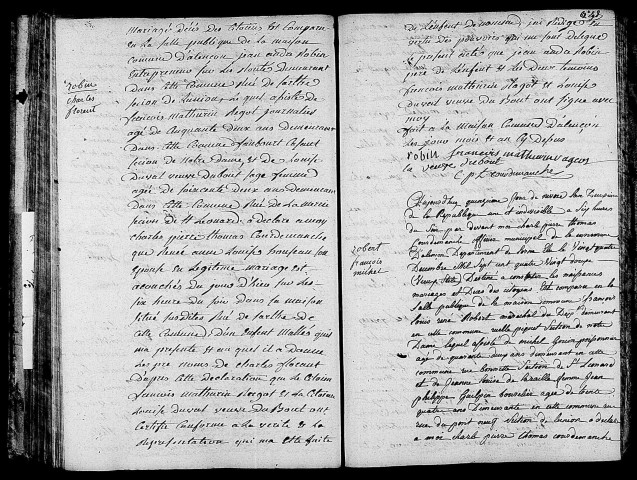 mariages décès des citoins est comparu
en la salle publique de la maison
commune d'alencon jean andré Robin
entrepreneur sur les demeurant
dans cette Commune Rüe de sarthe
section de lunion, le quel assisté de
francois mathurin hagot journalier
agé de cinquante deux ans demeurant
dans cette Commune
section de Notre Dame, et de Louise
duval veuve dubout sage femme
agée de soixante deux ans demeurant
dans cette Commune Rüe de la
section de St Leonard, à declaré a moy
charles pierre thomas Courdemanche,
que Renée anne Louise son
epouse en legitime mariage est
accouchée du jour d'hier sur les
six heure du soir dans la maison
situé susditte Rüe de sarthe de
cette Commune, d'un enfant malle qui
ma presenté et au quel il a donné
les pre noms de charles florent
Dapres cette declaration que le citoien
francois mathurin hagot et la citoienne
Louise duval veuve dubout ont
Certifié conforme a la verité et la
Representation qui ma esté faite
robin
charles
florent
de l'enfent denommé, jai Redigé en
vertu des pouvoirs qui me sont delegué
le present acte que jean andré Robin
pere de l'enfent et les deux temoins
francois mathurin hagot et Louise
duval veuve du Bout ont signé avec
moy
fait a la maison Commune d'alencon
les jours mois et an cy dessus
robin francois mathurin agot
la veuve dubout
C. p. t. courdemanche
Aujourdhuy quinzieme jour de nivose lan deuxieme
de la Republique une et indivisible a six heures
du soir par devant moi charles pierre thomas
Courdemanche officier municipal de la commune
D'alencon Departement de lorne Elu le vingt quatre
Decembre mil sept cent quatre vingt douze
vieux stile Destiné a constater les naissances
mariages et Deces des citoyens Est comparu en la
Salle publique de la maison commune francois
louis rené Robert marechal demeurant
en cette commune ruelle section de notre
Dame lequel assisté de michel
agé de quarante cinq ans demeurant en cette
commune rue section de St Leonard
et de jeanne Louise femme jean
philippe agee de trente
quatre ans Demeurante en cette commune
rue du pont neuf section de lunion a declaré
a moi charle pierre thomas courdemanche
robert
francois
michel